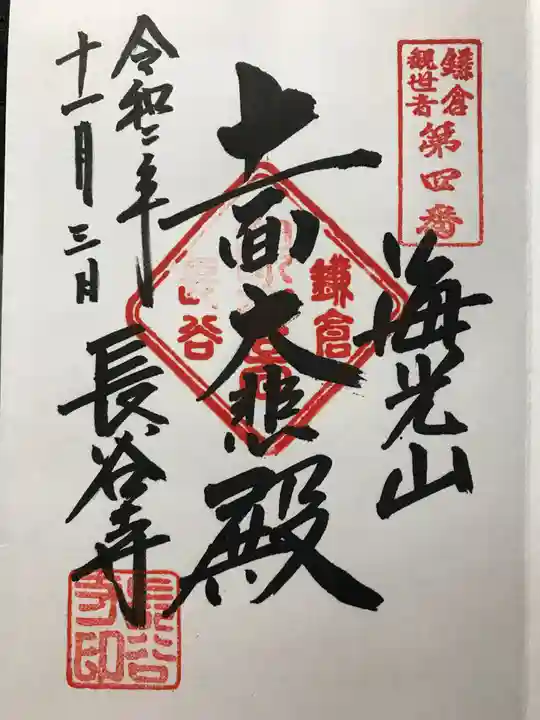 鎌倉
観世音
第四番
海光山
十一面大悲殿
鎌倉
長谷
令和二年
十一月三日
長谷寺
長谷寺印